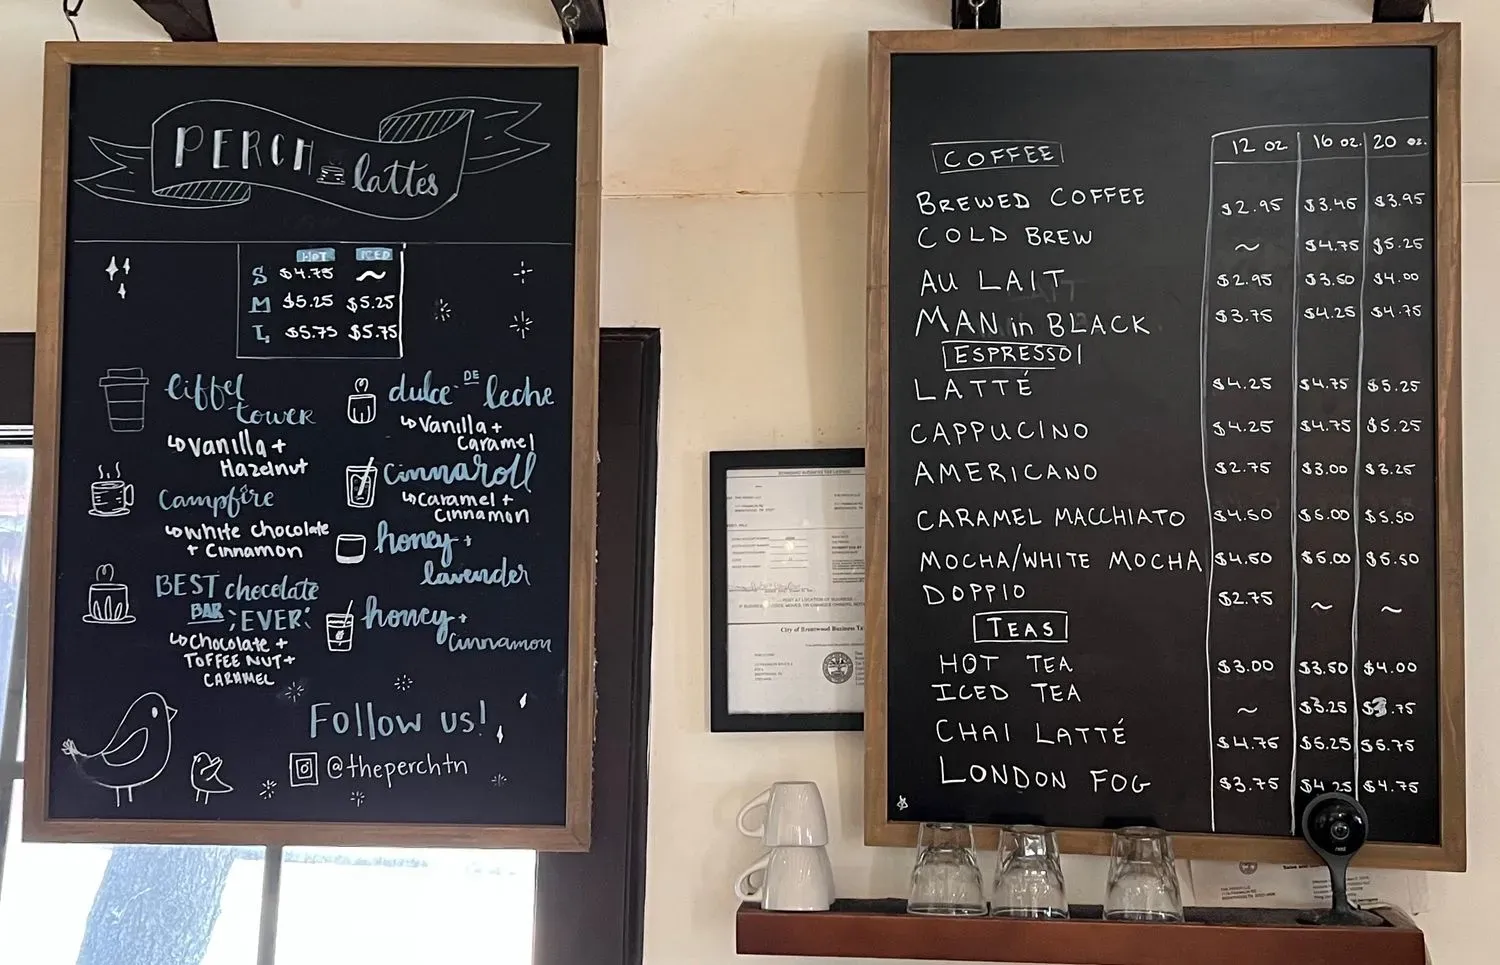 PERCH lattes
HOT ICED
S $4.75 ~
M $5.25 $5.25
L $5.75 $5.75
Eiffel
tower
↳ Vanilla +
Hazelnut
Campfire
↳ White chocolate
+ Cinnamon
BEST chocolate
BAR EVER!
↳ Chocolate +
TOFFEE NUT +
CARAMEL
dulce DE leche
↳ Vanilla +
Caramel
Cinnaroll
↳ Caramel +
Cinnamon
honey +
lavender
honey +
Cinnamon
Follow us!
@theperchtn
City of Brentwood Business Ta
COFFEE 12 oz 16 oz. 20 oz.
BREWED COFFEE $2.95 $3.45 $3.95
COLD BREW ~ $4.75 $5.25
AU LAIT $2.95 $3.50 $4.00
MAN in BLACK $3.75 $4.25 $4.75
ESPRESSO
LATTÉ $4.25 $4.75 $5.25
CAPPUCINO $4.25 $4.75 $5.25
AMERICANO $2.75 $3.00 $3.25
CARAMEL MACCHIATO $4.50 $5.00 $5.50
MOCHA/WHITE MOCHA $4.50 $5.00 $5.50
DOPPIO $2.75 ~ ~
TEAS
HOT TEA $3.00 $3.50 $4.00
ICED TEA ~ $3.25 $3.75
CHAI LATTÉ $4.75 $5.25 $5.75
LONDON FOG $3.75 $4.25 $4.75
nest